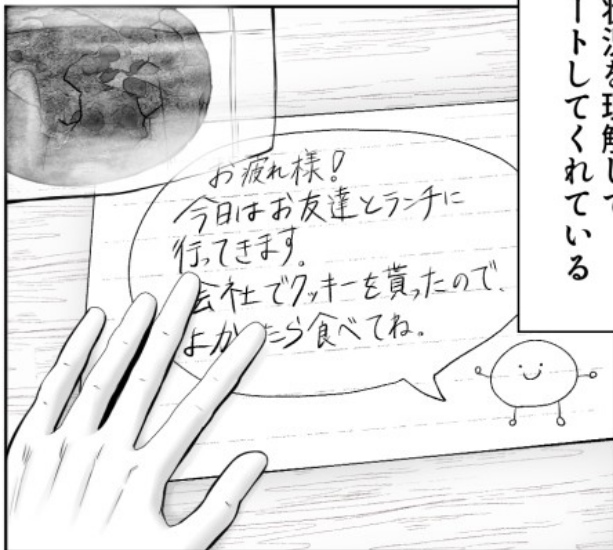 トしてくれている
お疲れ様!
今日はお友達とランチに
行ってきます。
会社でクッキーを貰ったので、
よか たら食べてね。